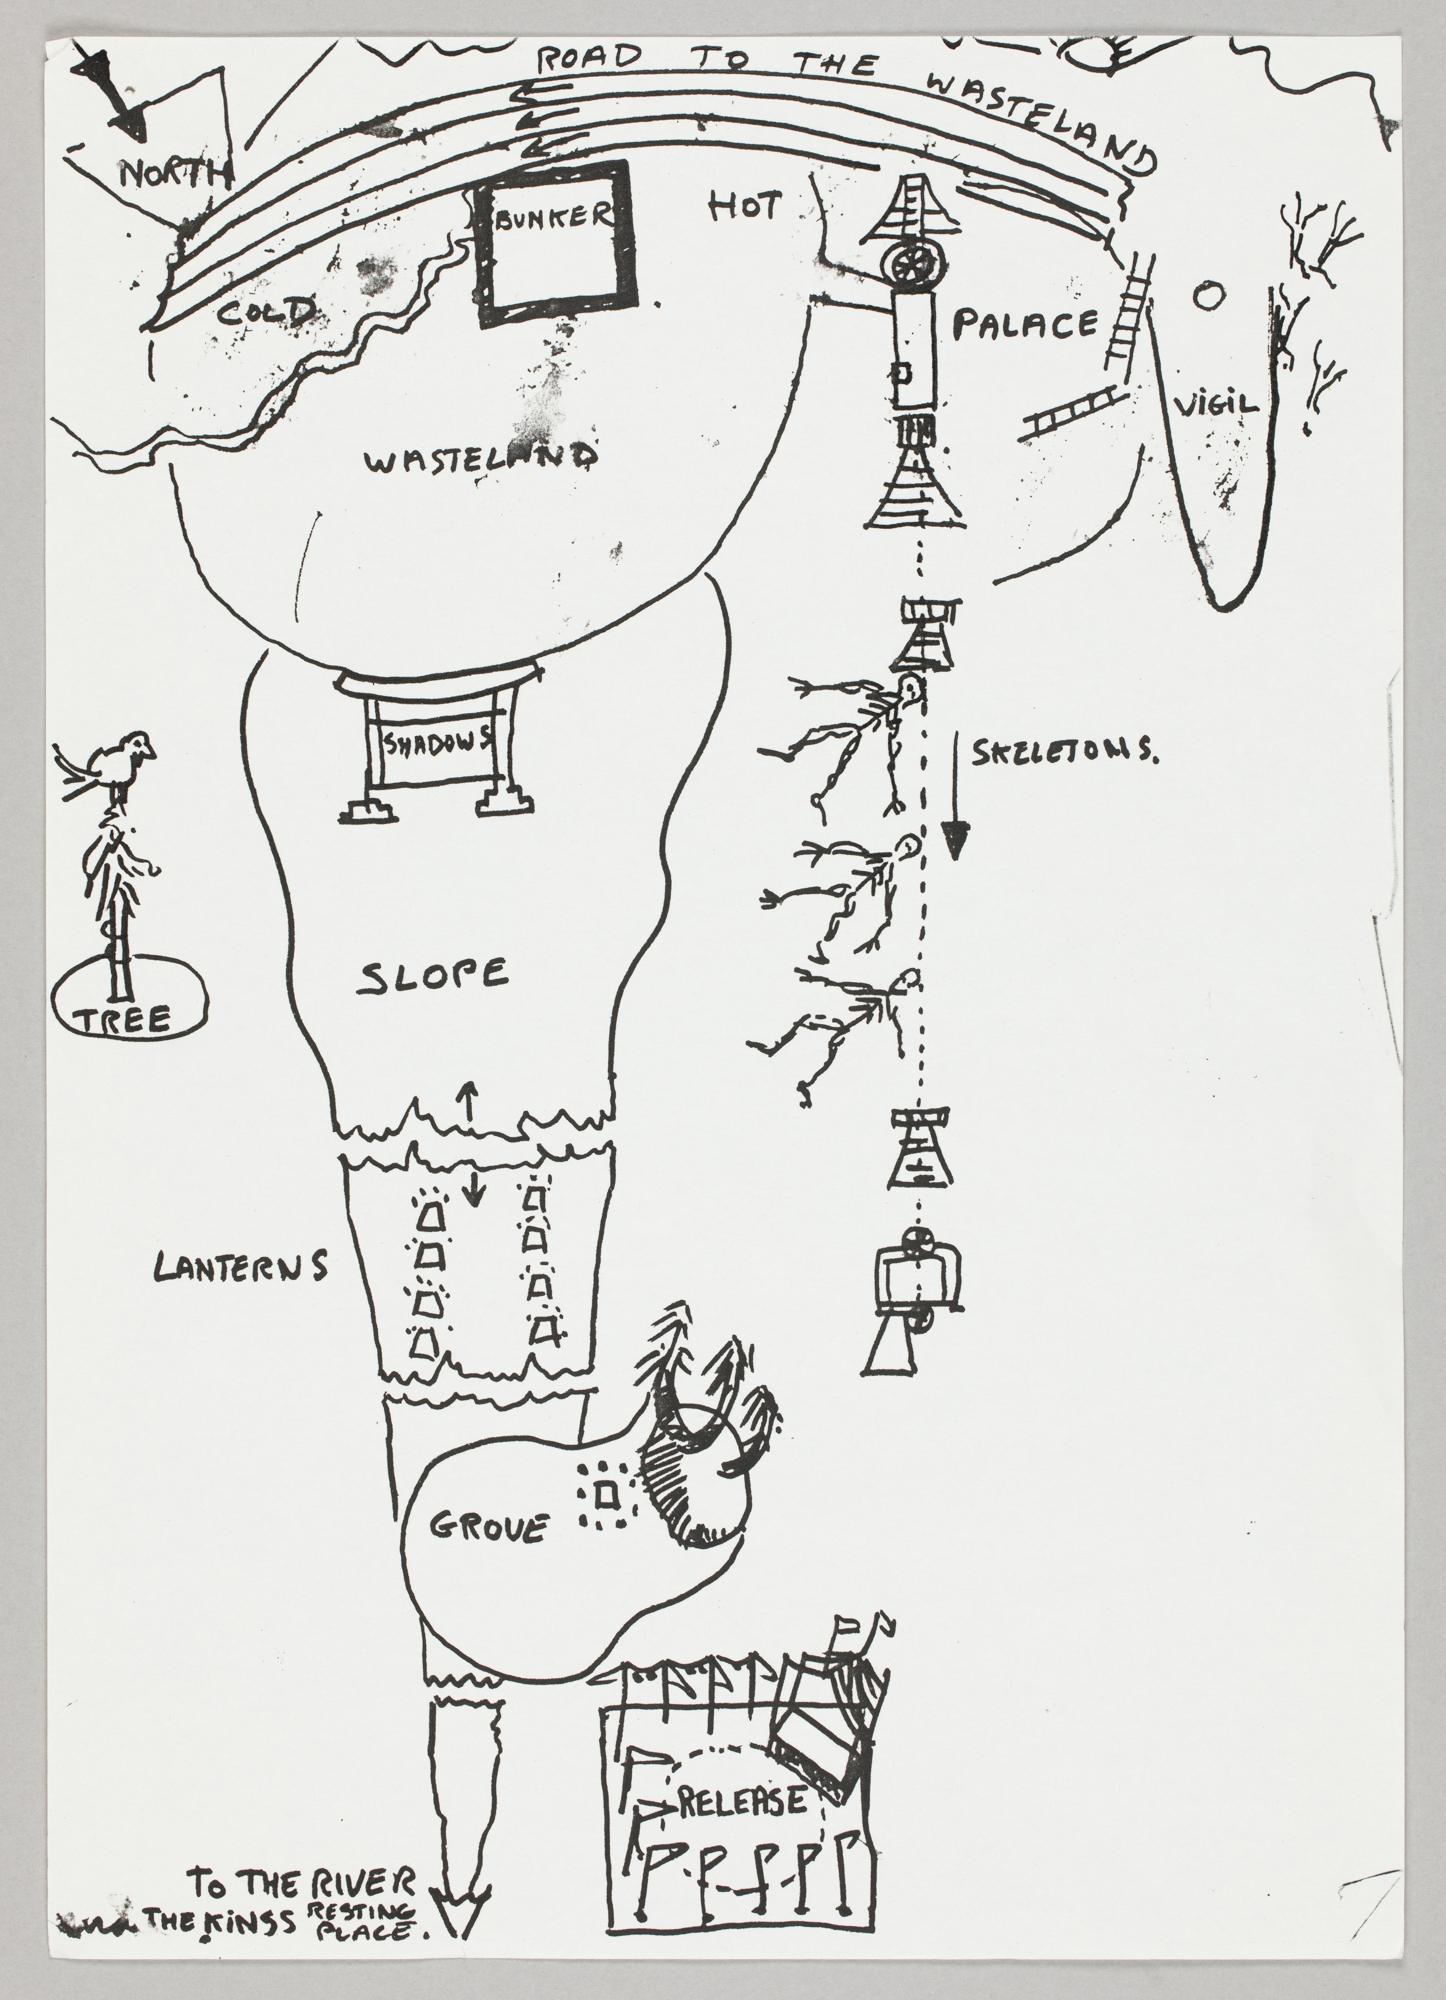 ROAD TO THE WASTELAND
NORTH
BUNKER
HOT
COLD
PALACE
VIGIL
WASTELAND
SHADOWS
SKELETONS.
SLOPE
TREE
LANTERNS
GROVE
RELEASE
TO THE RIVER
THE KINGS RESTING
PLACE.